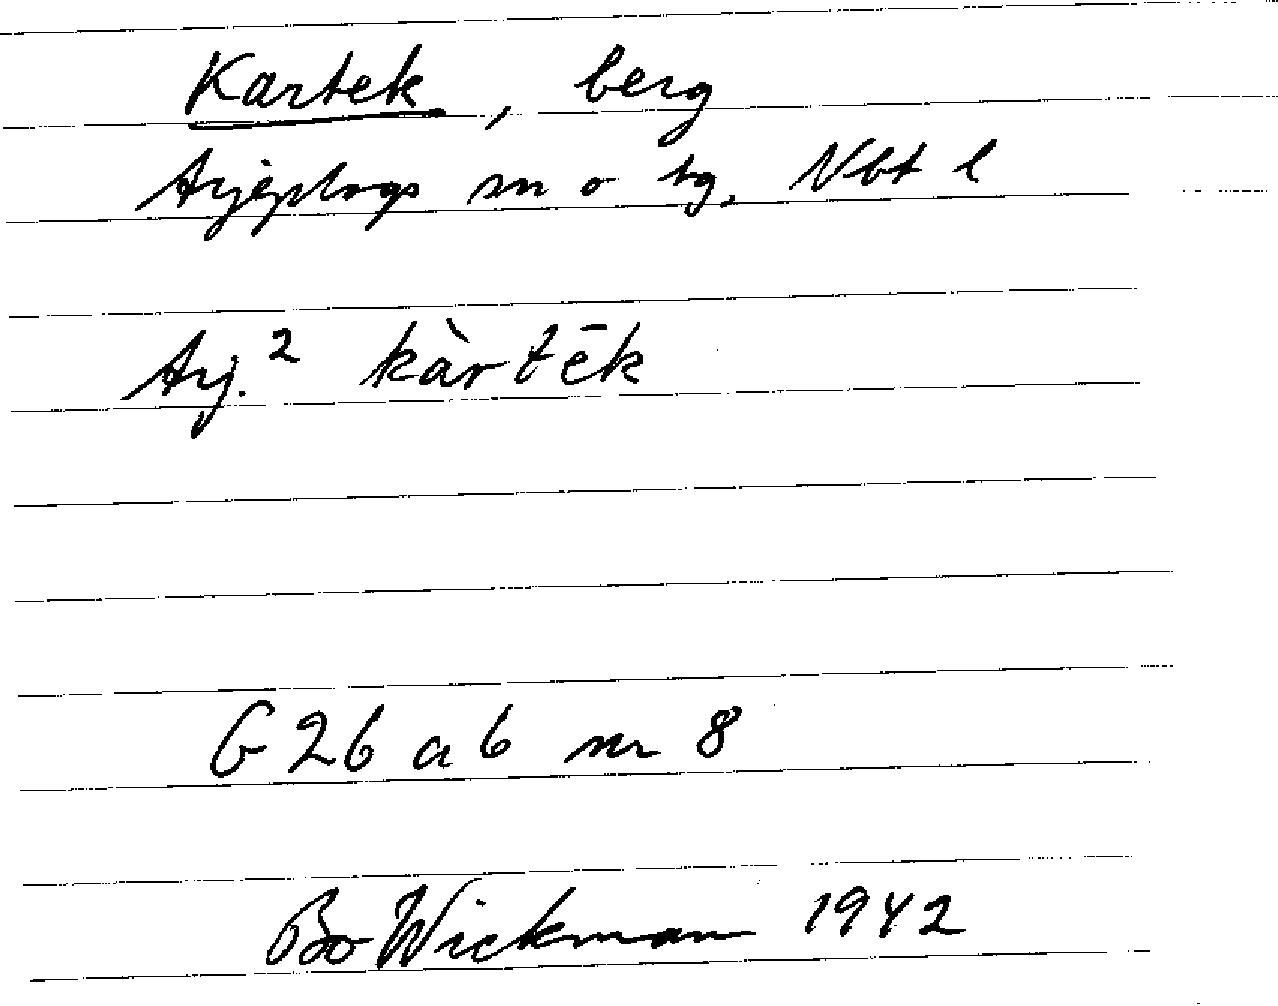 Kartek, berg
Arjeplogs sn o tg, Nbt l
Arj.² kàrtēk
G 26 a b nr 8
Bo Wickman 1942